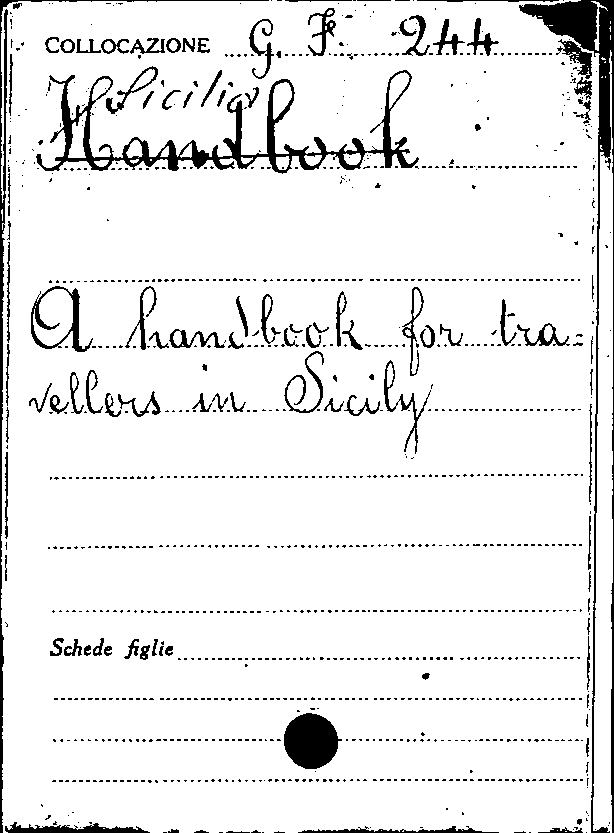 COLLOCAZIONE G. F. 244
Sicilia
Handbook
A handbook for tra-
vellers in Sicily
Schede figlie